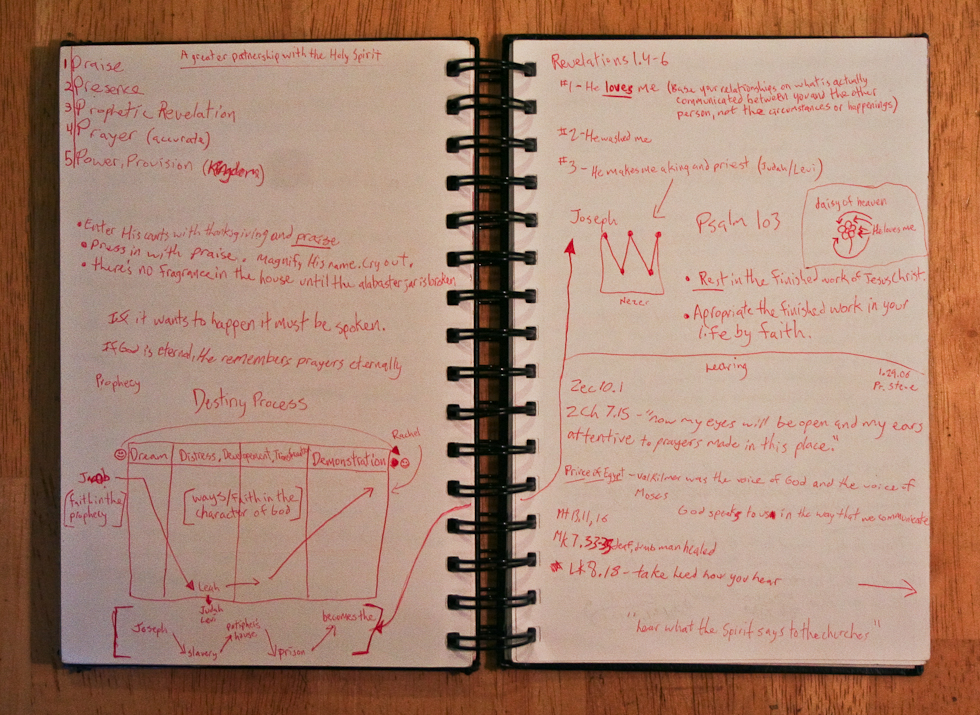 A greater partnership with the Holy Spirit
1 Praise
2 Presence
3 Prophetic Revelation
4 Prayer (accurate)
5 Power, Provision (Kingdom)
• Enter His courts with thanksgiving and praise
• Press in with praise. Magnify His name. Cry out.
• there's no fragrance in the house until the alabaster jar is broken
If it wants to happen it must be spoken.
If God is eternal, He remembers prayers eternally
Prophecy
Destiny Process
Rachel
Dream
Distress, Development,
Demonstration
Jacob
[faith in the
prophecy]
[ways/faith in the
character of God]
Leah
Judah
Levi
Joseph
slavery
potipher's
house
prison
becomes the
Revelations 1.4-6
#1 - He loves me (Base your relationships on what is actually
communicated between you and the other
person, not the circumstances or happenings)
#2 - He washed me
#3 - He makes me a king and priest (Judah/Levi)
Joseph
Nezer
Psalm 103
daisy of heaven
He loves me
• Rest in the finished work of Jesus Christ.
• Apropriate the finished work in your
life by faith.
hearing
1.29.06
Pr. Steve
Zec 10.1
2 Ch 7.15 - "now my eyes will be open and my ears
attentive to prayers made in this place."
Prince of Egypt - val Kilmer was the voice of God and the voice of
Moses
God speaks to us in the way that we communicate
Mt 13, 11, 16
Mk 7. deaf, dumb man healed
* Lk 8.18 - take heed how you hear
"hear what the Spirit says to the churches"